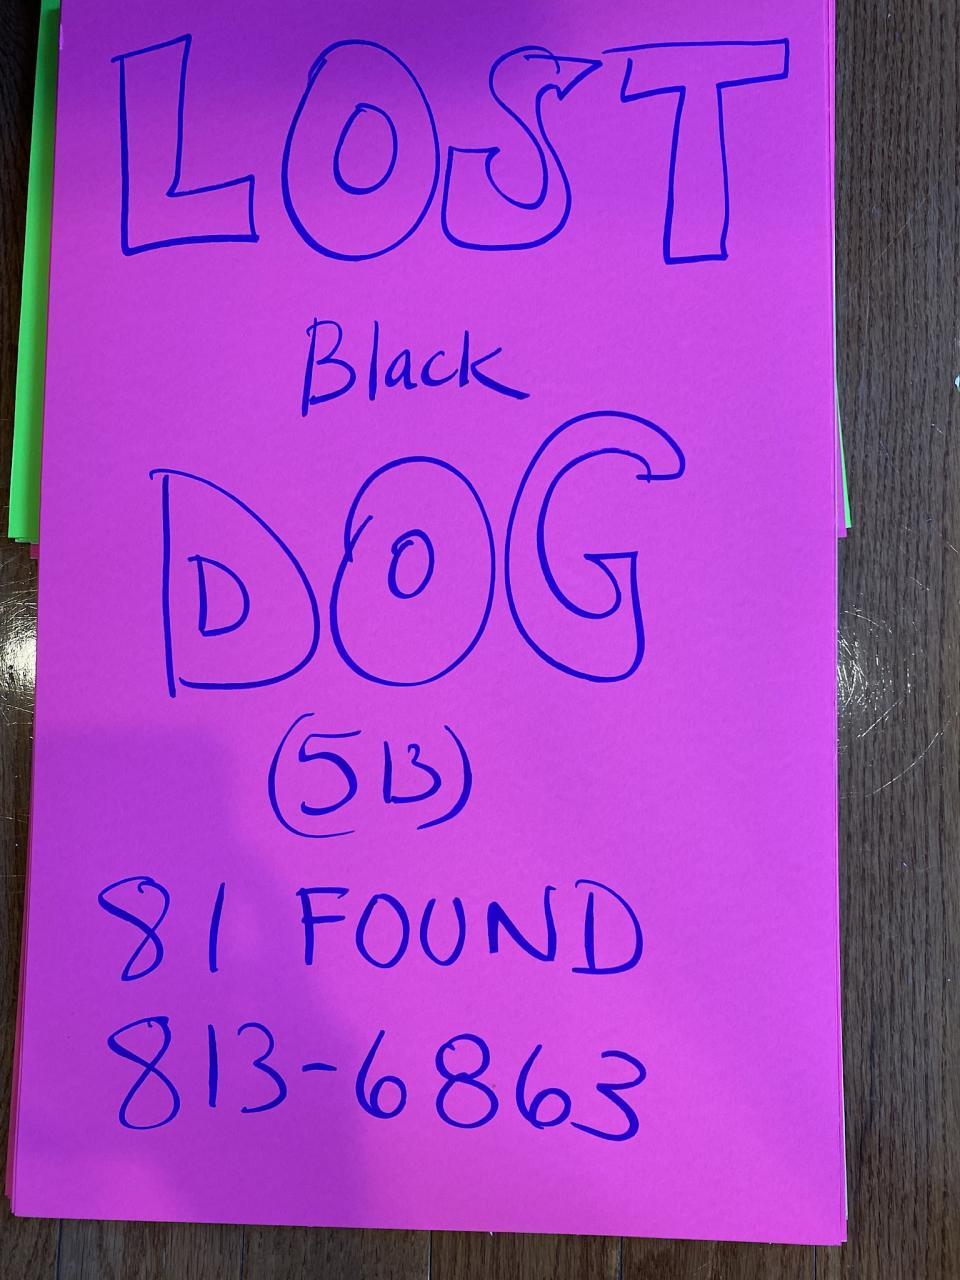 LOST
Black
DOG
(513)
81 FOUND
813-6863